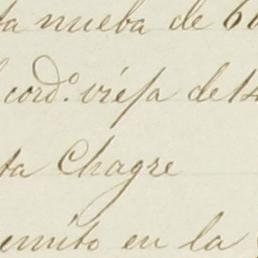 ta nueba de 60
cord.º viéja de 14
ta Chagre
emito en la